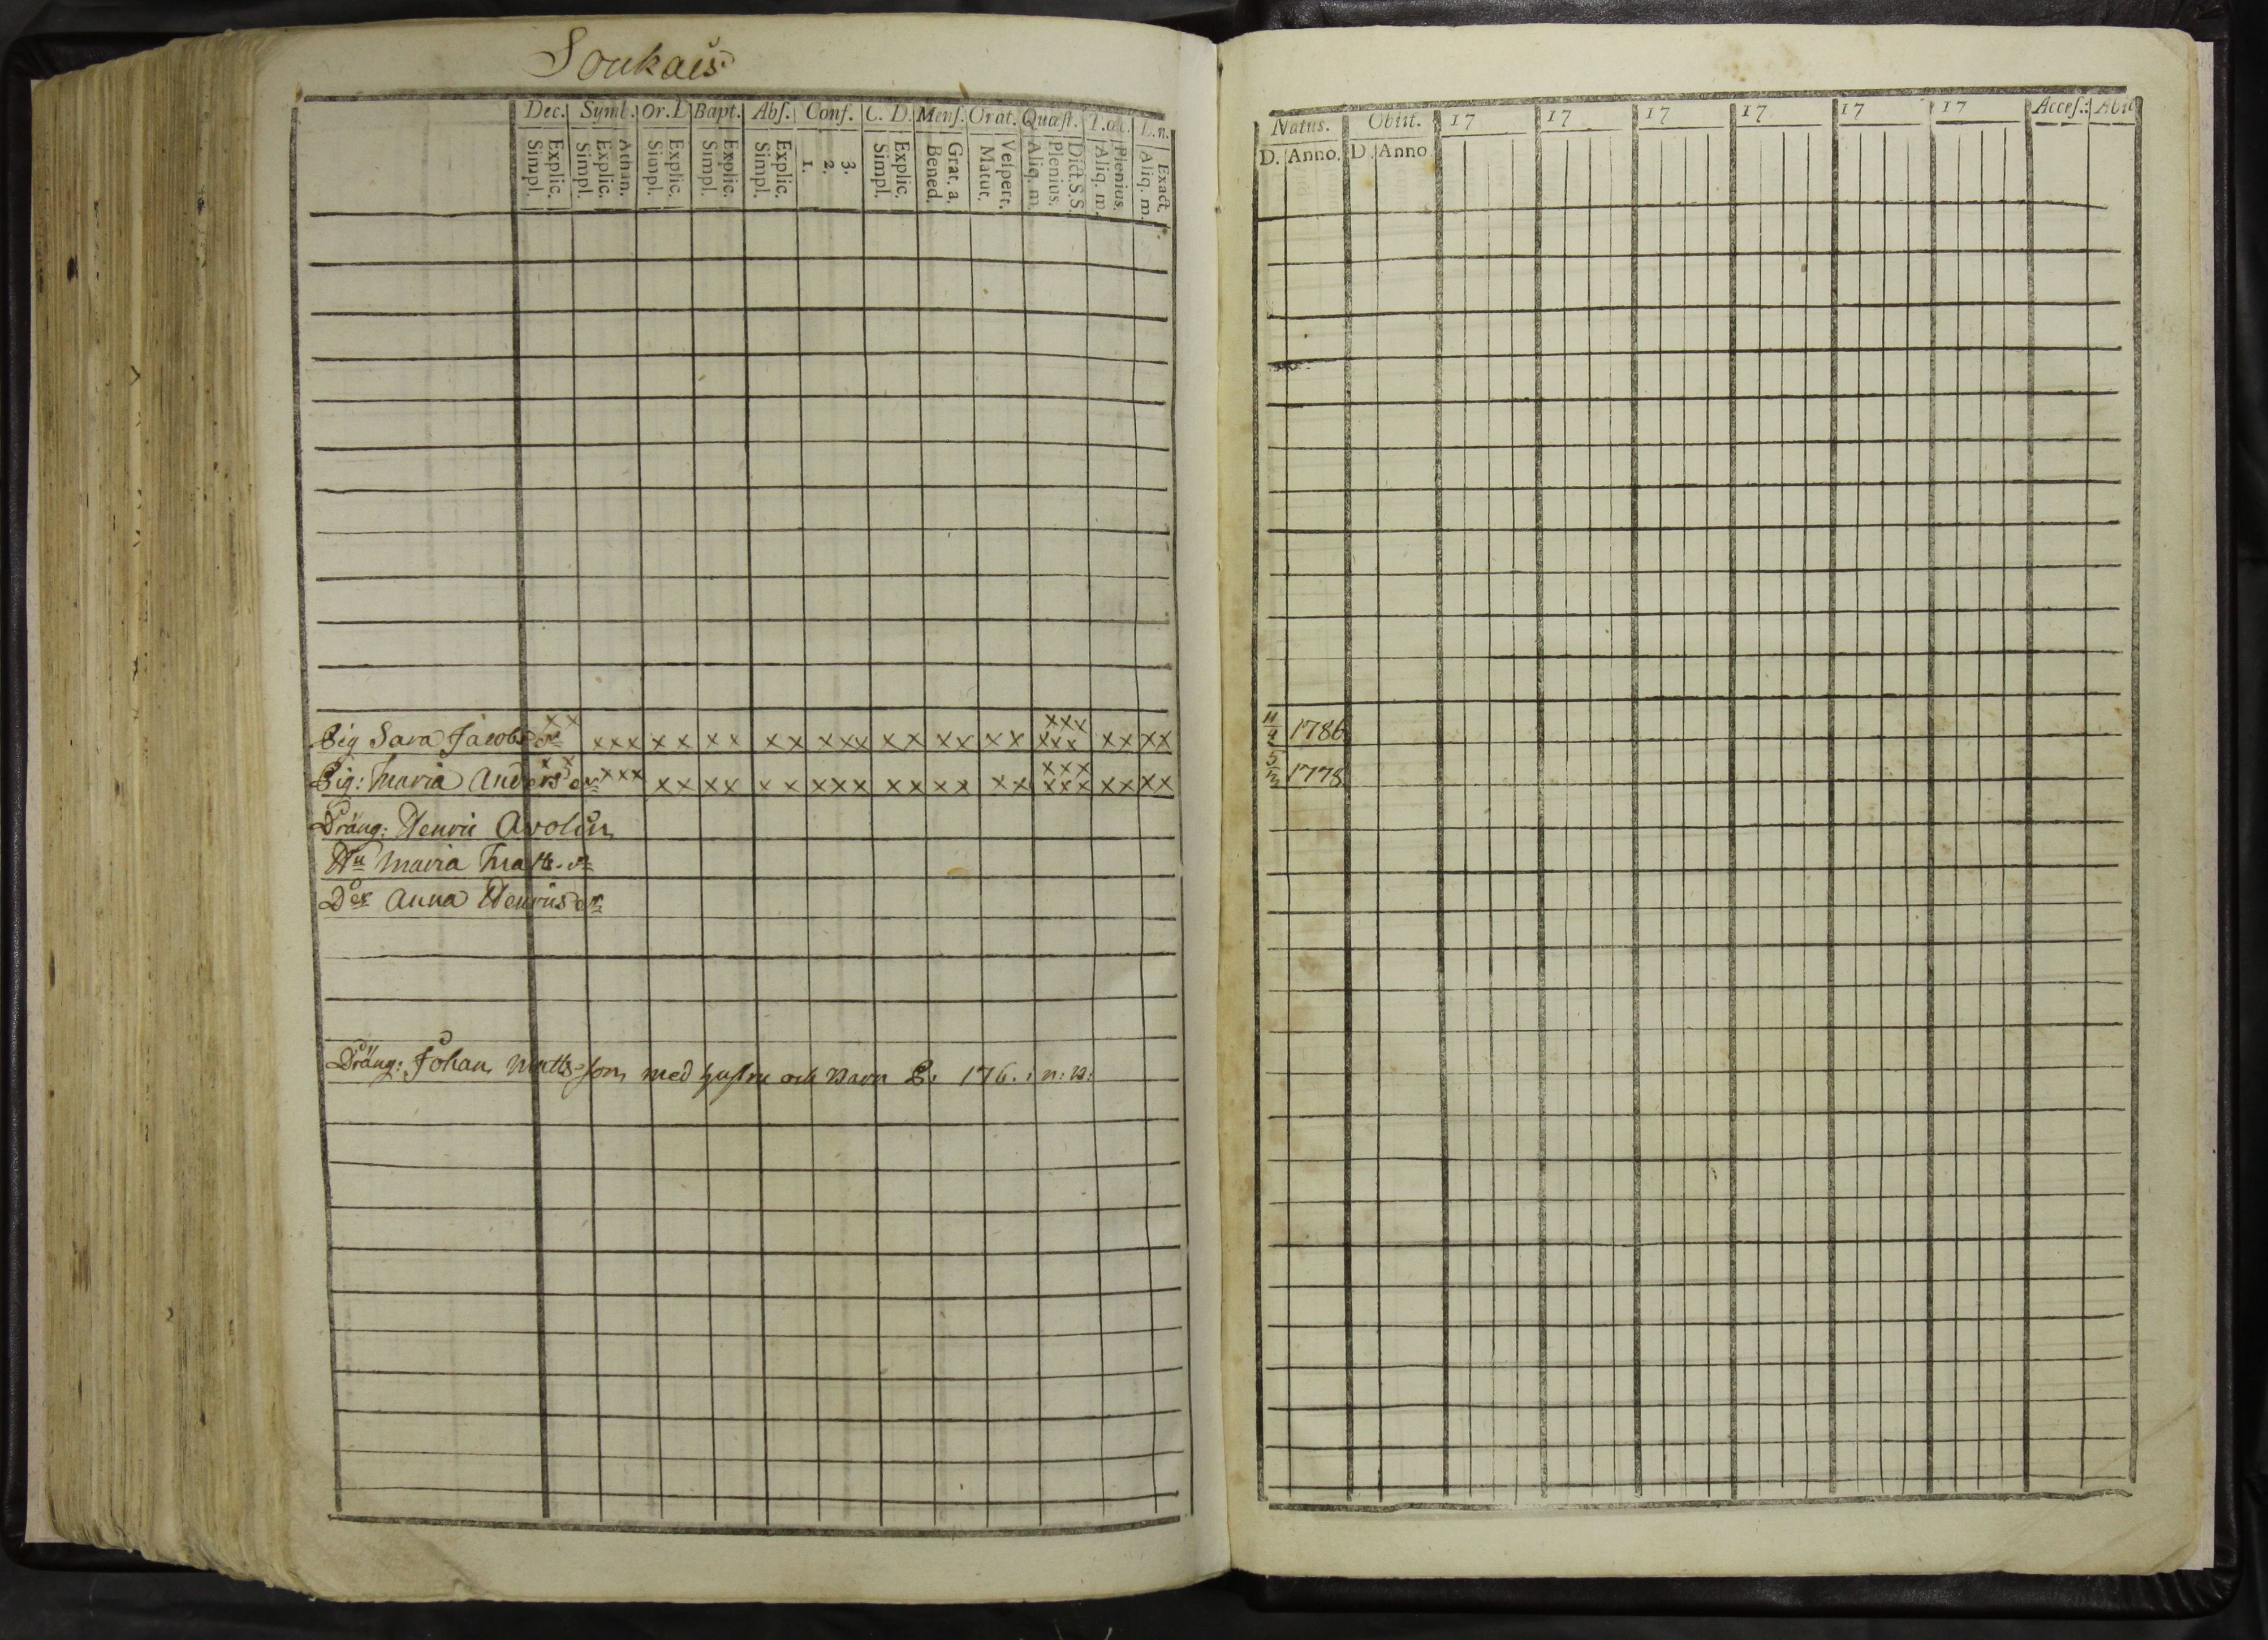 Soukais
Dec. Symb. Or. D Bapt. Abs. Conf. C. D. Mens. Orat. Quæst. T.œc. L.n.
Simpl. Explic. Simpl. Explic. Athan. Simpl. Explic. Simpl. Explic. Simpl. Explic. 1. 2. 3. Simpl. Explic. Bened. Grat. a. Matut. Vespert. Aliq. m. Plenius. Dict.S.S. Aliq. m. Plenius. Aliq. m. Exact.
Pig Sara Jacobs dr xx xxx xx xx xx xxx xx xx xx xxx xxx xx xx
Pig: Maria Anders dr xx xxx xx xx xx xxx xx xx xx xxx xxx xx xx
Dräng: Henric Avolin
Hu Maria Matts. dr
Der Anna Henrics dr
Dräng: Johan Matts-son med hustru och Barn P: 176. i n: B:
Natus. Obiit. 17 17 17 17 17 17 Acces.: Abit
D. Anno. D. Anno.
11/4 1786
5/12 1778